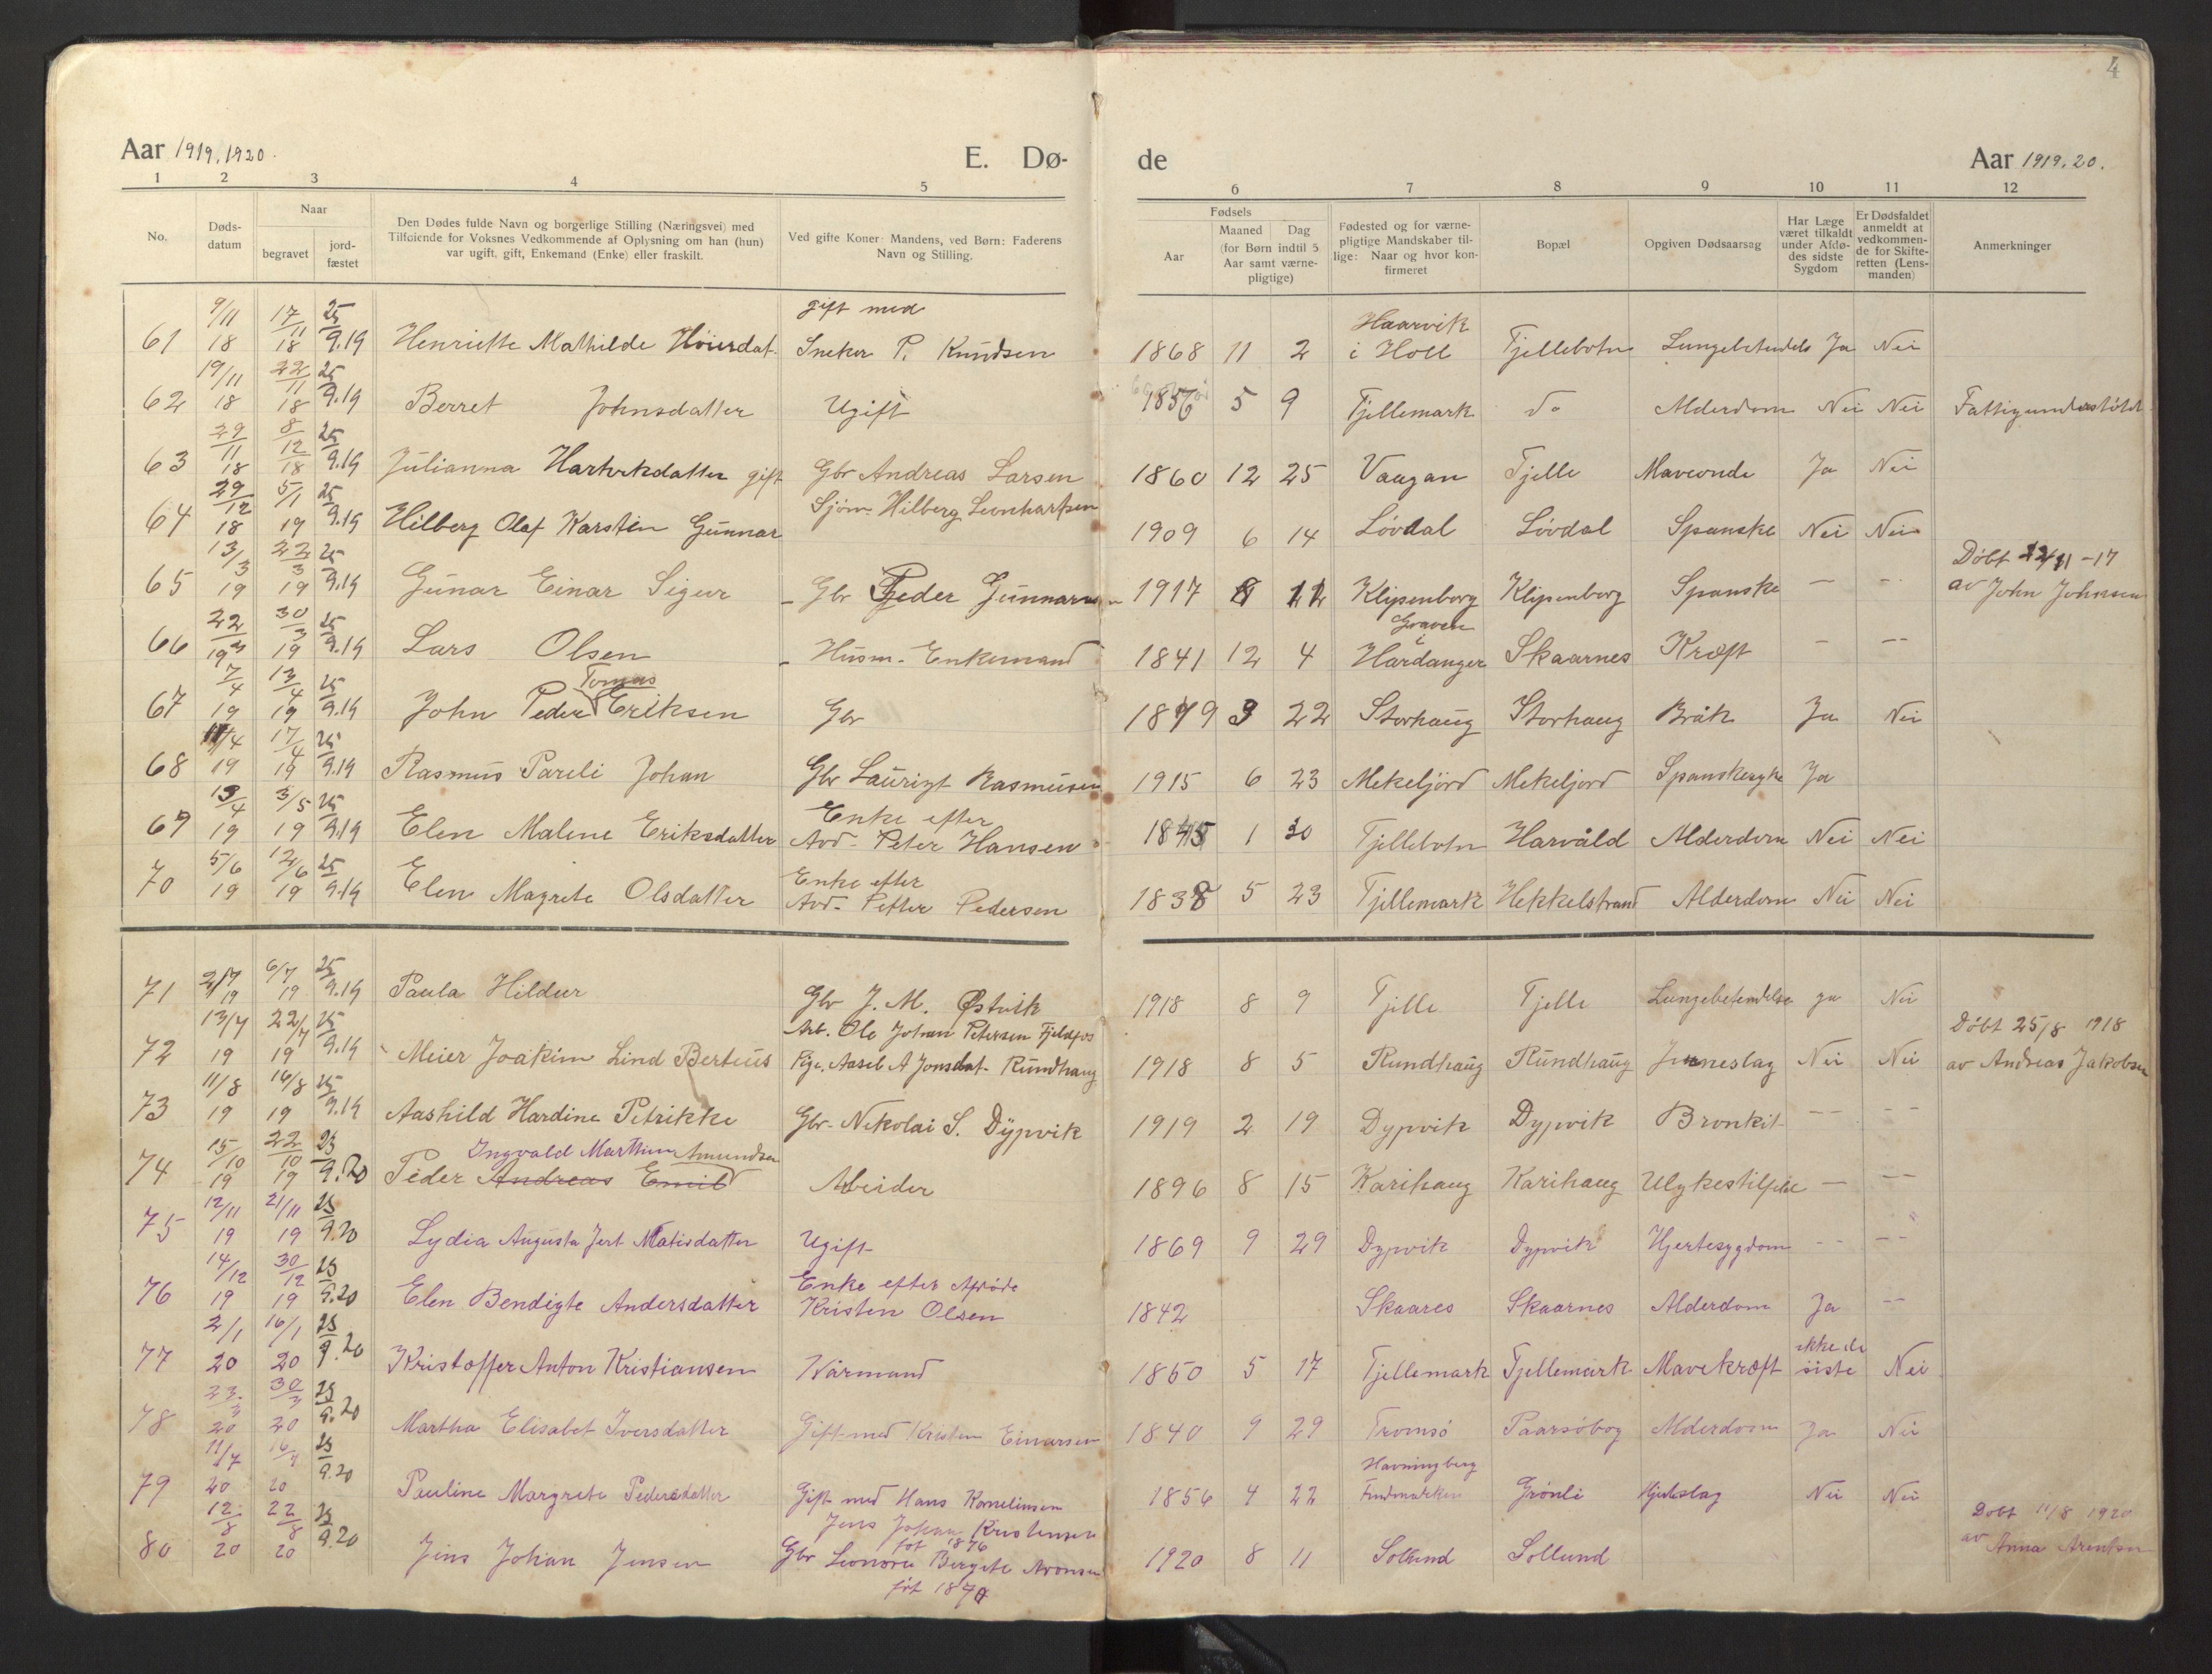 Aar 1919, 1920. E. Dø- de Aar 1919. 20.
4
1 2 3 4 5 6 7 8 9 10 11 12
No. Døds-datum Naar begravet jord-fæstet Den Dødes fulde Navn og borgerlige Stilling (Næringsvei) med Tilføiende for Voksnes Vedkommende af Oplysning om han (hun) var ugift, gift, Enkemand (Enke) eller fraskilt. Ved gifte Koner: Mandens, ved Børn: Faderens Navn og Stilling. Fødsels Aar Maaned Dag (for Børn indtil 5 Aar samt værne-pligtige) Fødested og for værne-pligtige Mandskaber til-lige: Naar og hvor kon-firmeret Bopæl Opgiven Dødsaarsag Har Læge været tilkaldt under Afdø-des sidste Sygdom Er Dødsfaldet anmeldt at vedkommen-de for Skifte-retten (Lens-manden) Anmerkninger
gift med Haarvik
61 9/11 18 17/11 18 25/9.19 Henriette Mathilde Høierdat. Sneker P. Knudsen 1868 11 2 i Holl Tjellebotn Lungebetendels Ja Nei
62 19/11 18 22/11 18 25/9.19 Berret Johnsdatter Ugift 1856 5 9 Tjellemark do Alderdom Nei Nei Fattigunderstøttet
63 29/11 18 8/12 18 25/9.19 Julianna Hartvikdatter gift Gbr Andreas Larsen 1860 12 25 Vaagan Tjelle Maveonde Ja Nei
64 29/12 18 5/1 19 25/9.19 Hilberg Olaf Karstén Gunnar Sjøm. Hilberg Leonhartsen 1909 6 14 Løvdal Løvdal Spanske Nei Nei
65 13/3 19 22/3 19 25/9.19 Gunar Einar Sigur - Gbr Peder Gunnarsen 1917 8 12 Klipenborg Klipenborg Spanske — — Døbt 22/11 -17 av John Johnsen
Graven
66 22/3 19 30/3 19 25/9.19 Lars Olsen - Husm. Enkemand 1841 12 4 i Hardanger Skaarnes Kræft — —
Tomas
67 7/4 19 13/4 19 25/9.19 John Peder Eriksen Gbr 1879 3 22 Storhaug Storhaug Bråk Ja Nei
68 11/4 19 17/4 19 25/9.19 Rasmus Pareli Johan Gbr Laurigt Rasmusen 1915 6 23 Mekeljord Mekeljord Spanskesyke Ja
Enke efter
69 13/4 19 3/5 19 25/9.19 Elen Malene Eriksdatter Avd. Peter Hansen 1845 1 30 Tjellebotn Harvåld Alderdom Nei Nei
Enke efter
70 5/6 19 12/6 19 25/9.19 Elen Magrete Olsdatter Avd. Petter Pedersen 1838 5 23 Tjellemark Hekkelstrand Alderdom Nei Nei
71 2/7 19 6/7 19 25/9.19 Paula Hildur Gbr J. M. Østvik 1918 8 9 Tjelle Tjelle Lungebetendelse ja Nei
Arb. Ole Johan Petersen Fjeldfos Døbt 25/8 1918
72 13/7 19 22/7 19 25/9.19 Meier Joakim Lind Berteus Pige. Aasel A Jonsdat. Rundhaug 1918 8 5 Rundhaug Rundhaug Nei Nei av Andreas Jakobsen
73 11/8 19 16/8 19 25/9.19 Aashild Hardine Petrikke Gbr. Nekolai S. Dypvik 1919 2 19 Dypvik Dypvik Bronkit — —
Ingvald Marthin Amundsen
74 15/10 19 22/10 19 25/9.20 Peder Andreas Emil Abeider 1896 8 15 Karihaug Karihaug Ulykestilfelde — —
75 12/11 19 21/11 19 25/9.20 Lydia Augusta Jert Matisdatter Ugift 1869 9 29 Dypvik Dypvik Hjertesygdom — —
Enke efter Afdøde
76 14/12 19 30/12 19 25/9.20 Elen Bendigte Andersdatter Kristen Olsen 1842 Skaares Skaarnes Alderdom Ja —
77 2/1 20 16/1 20 25/9.20 Kristoffer Anton Kristiansen Kårmand 1850 5 17 Tjellemark Tjellemark Mavekræft ikke de siste Nei
78 23/3 20 30/3 20 25/9.20 Martha Elisabet Iversdatter Gift med Kristen Einarsen 1840 9 29 Tromsø Paarsøbog Alderdom Ja Nei
Havningberg
79 11/7 20 16/7 20 25/9.20 Pauline Margrete Pedersdatter Gift med Hans Kornelinsen 1856 4 22 Findmarken Grønli Hjertslag Nei Nei
Jens Johan Kristensen føt 1876 Døbt 11/8 1920
80 12/8 20 22/8 20 25/9.20 Jens Johan Jensen Gbr Leonore Bergete Aronsen 1920 8 11 Sollund Sollund av Anna Arentsen
føt 1870